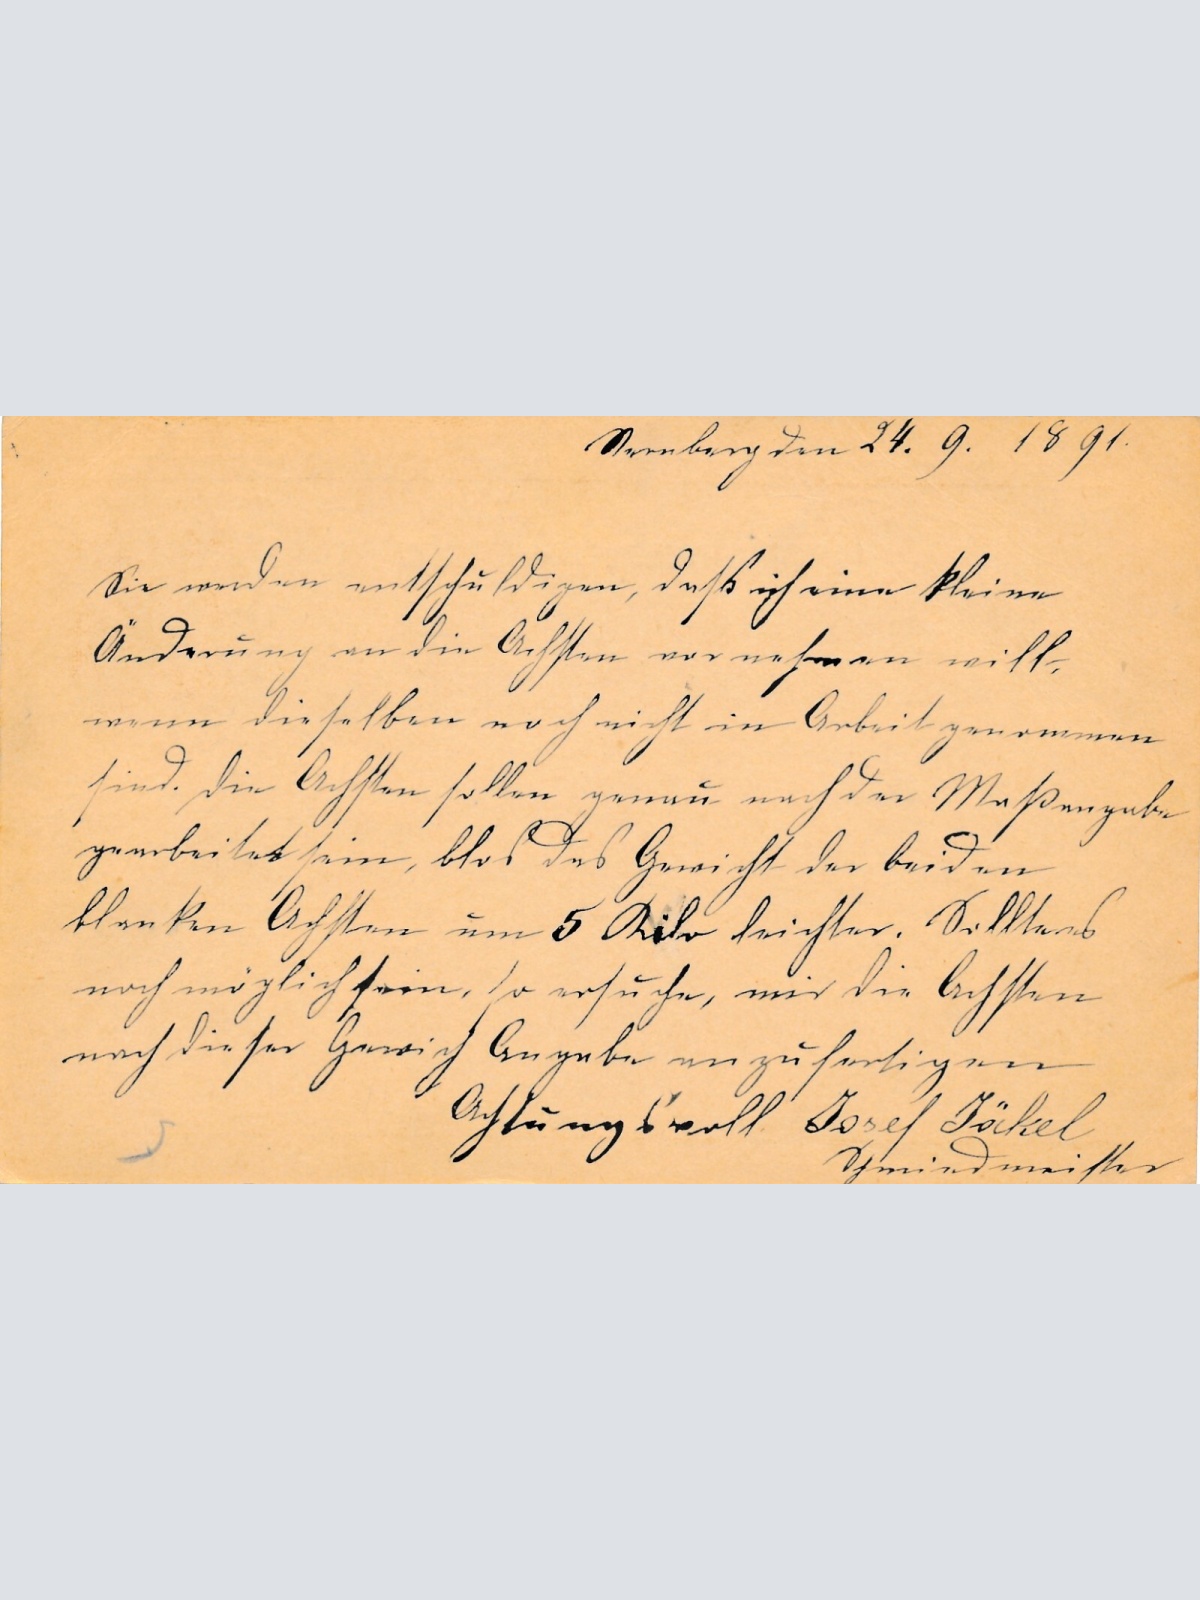 Sternberg den 24. 9. 1891.
Sie werden entschuldigen, daß ich eine kleine
Änderung an die Achsten vornehmen will,
wenn dieselben noch nicht in Arbeit genommen
sind. Die Achsten sollen genau nach der Maßangabe
gearbeitet sein, blos das Gewicht der beiden
blanken Achsten um 5 Kilo leichter. Sollte es
noch möglich sein, so ersuche, mir die Achsten
nach dieser Gewich Angabe anzufertigen
Achtungsvoll Josef Jäckel
Schmiedmeister